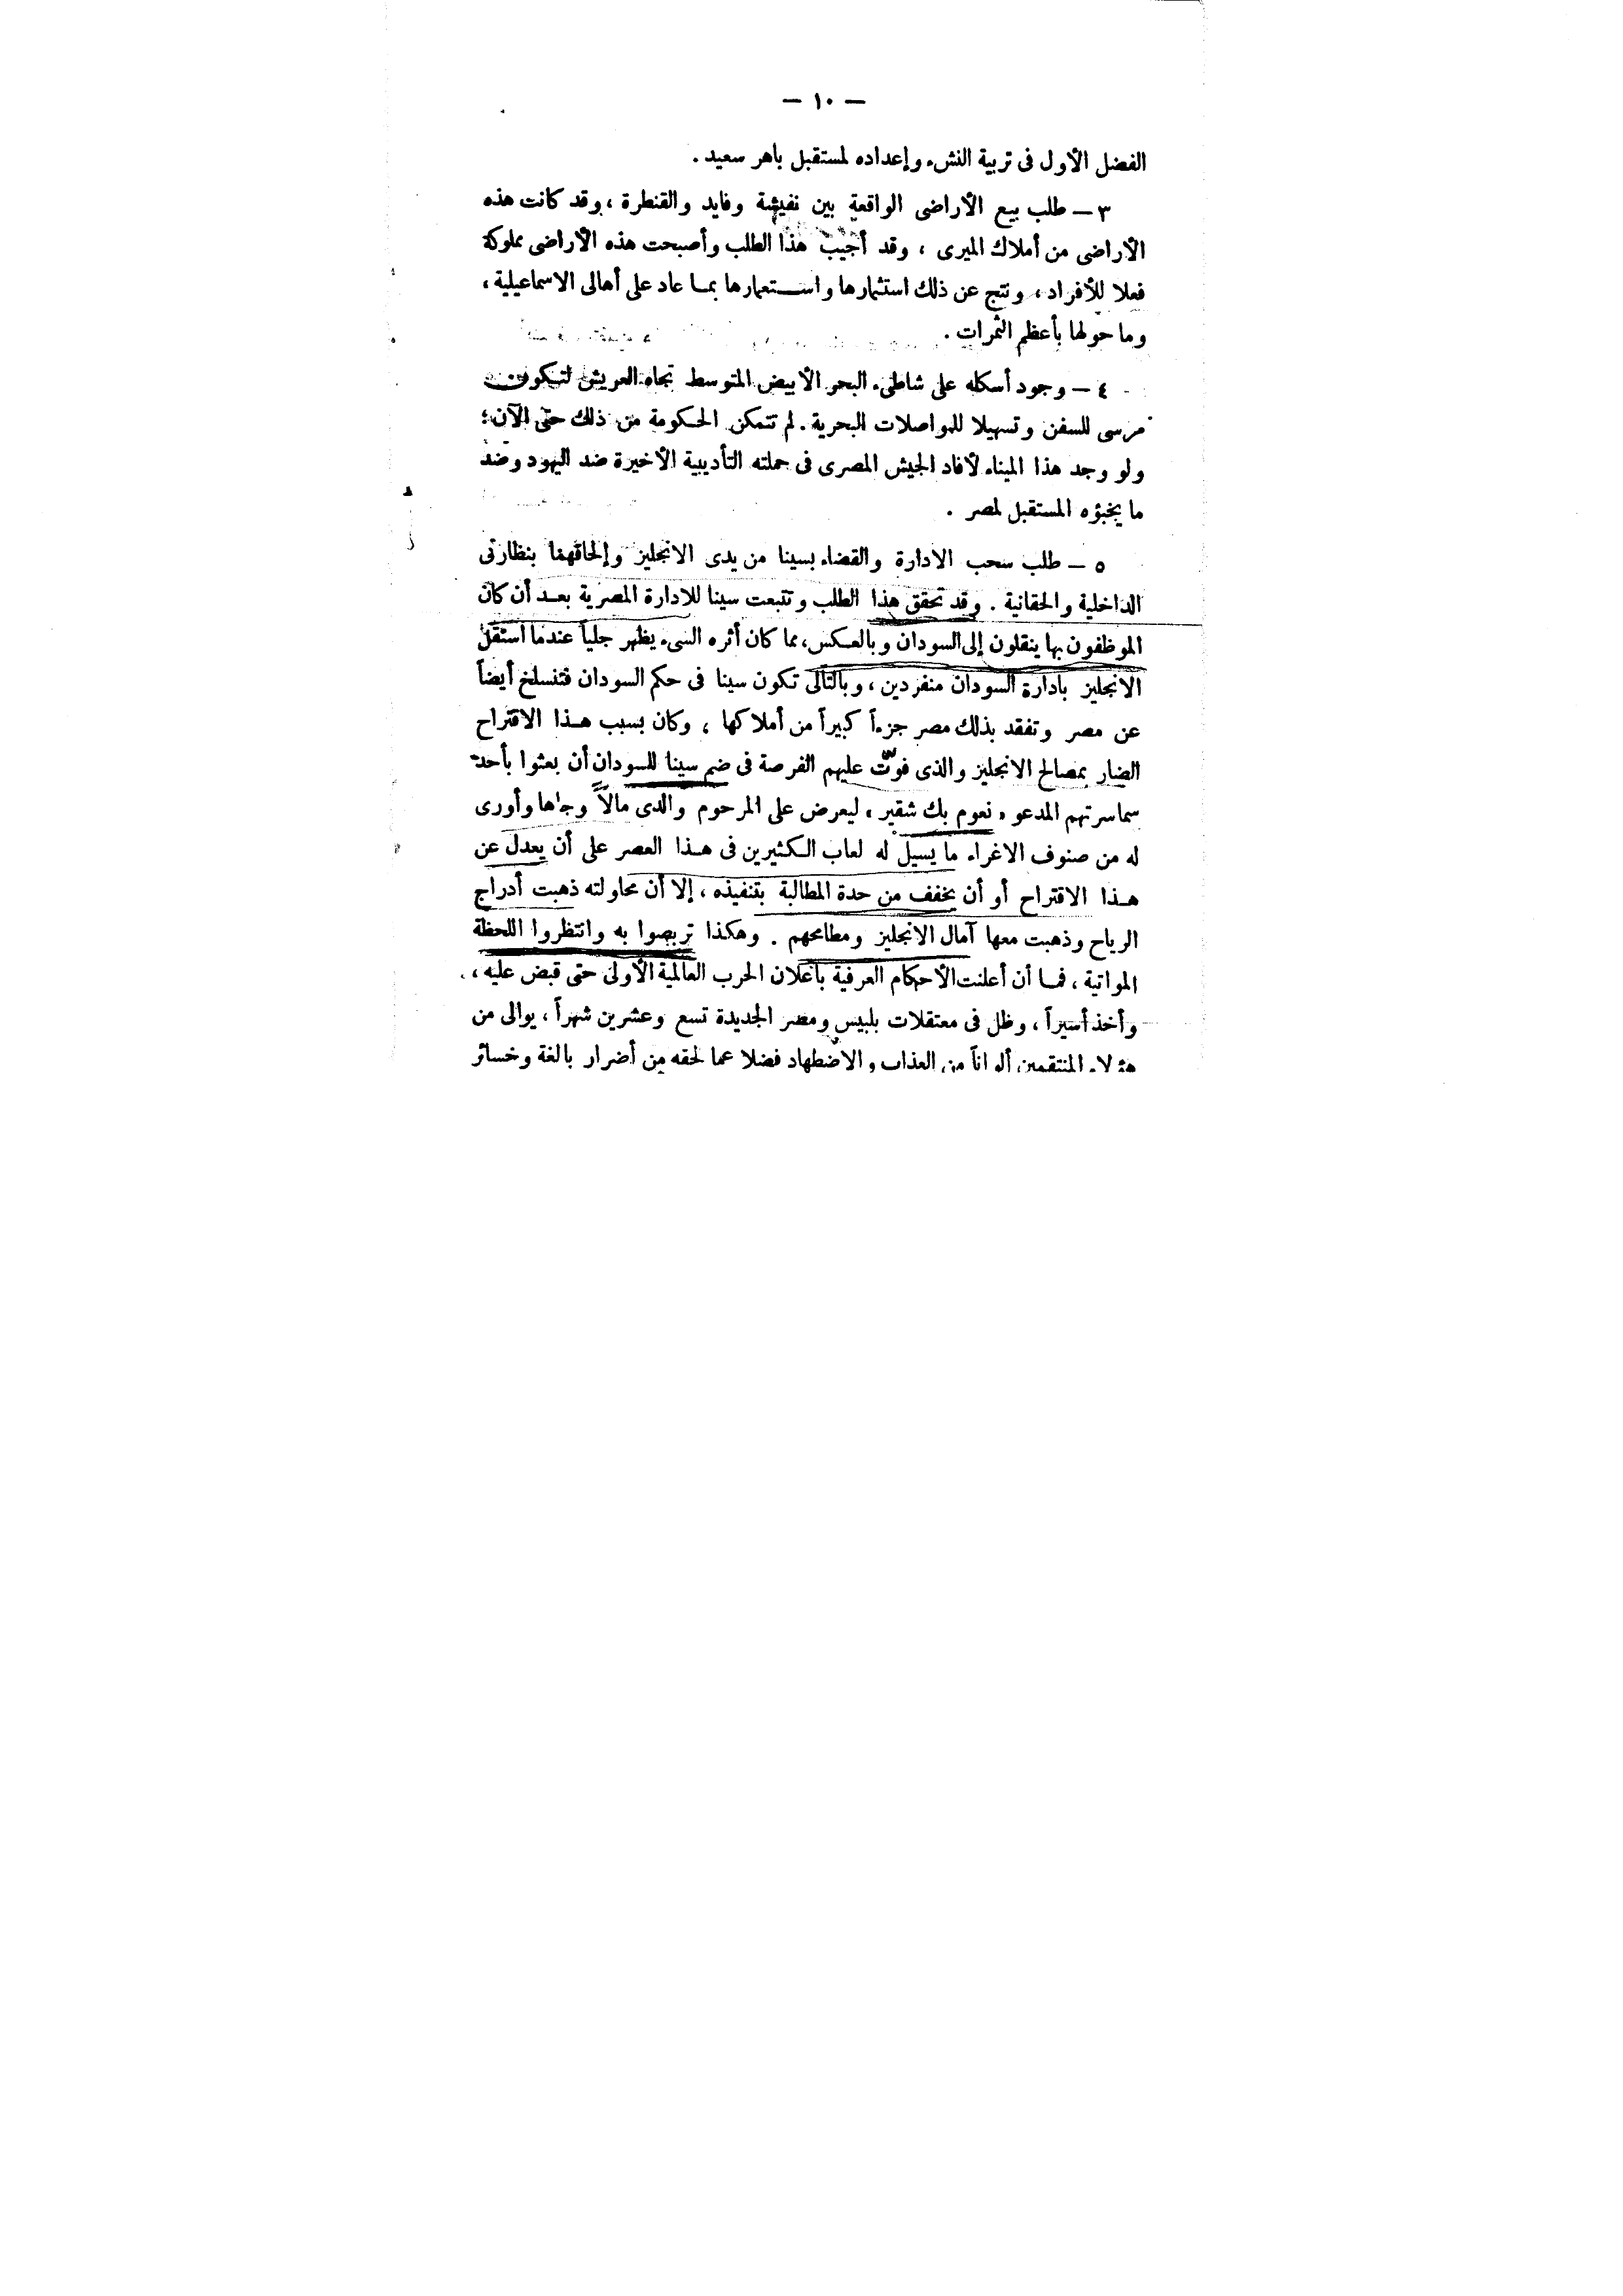 — ١٠ —
الفضل الأول فى تربية النشء وإعداده لمستقبل باهر سعيد .
٣ — طلب بيع الأراضى الواقعة بين نفيشة وفايد والقنطرة ، وقد كانت هذه
الأراضى من أملاك الميرى ، وقد أجيب هذا الطلب وأصبحت هذه الأراضى مملوكة
فعلا للأفراد ، ونتج عن ذلك استثمارها واستعمارها بما عاد على أهالى الاسماعيلية ،
وما حولها بأعظم الثمرات .
٤ — وجود أسكله على شاطىء البحر الأبيض المتوسط تجاه العريش لتكون
مرسى للسفن وتسهيلا للمواصلات البحرية . لم تتمكن الحكومة من ذلك حتى الآن ؛
ولو وجد هذا الميناء لأفاد الجيش المصرى فى حملته التأديبية الأخيرة ضد اليهود وضد
ما يخبؤه المستقبل لمصر .
٥ — طلب سحب الادارة والقضاء بسينا من يدى الانجليز وإلحاقهما بنظارتى
الداخلية والحقانية . وقد تحقق هذا الطلب وتتبعت سينا للادارة المصرية بعد أن كان
الموظفون بها ينقلون إلى السودان وبالعكس ، مما كان أثره السىء يظهر جلياً عندما استقل
الانجليز بادارة السودان منفردين ، وبالتالى تكون سينا فى حكم السودان فتنسلخ أيضاً
عن مصر وتفقد بذلك مصر جزءاً كبيراً من أملاكها ، وكان بسبب هذا الاقتراح
الضار بمصالح الانجليز والذى فوّت عليهم الفرصة فى ضم سينا للسودان أن بعثوا بأحد
سماسرتهم المدعو « نعوم بك شقير » ليعرض على المرحوم والدى مالاً وجاها وأورى
له من صنوف الاغراء ما يسيل له لعاب الكثيرين فى هذا العصر على أن يعدل عن
هذا الاقتراح أو أن يخفف من حدة المطالبة بتنفيذه ، إلا أن محاولته ذهبت أدراج
الرياح وذهبت معها آمال الانجليز ومطامحهم . وهكذا تربصوا به وانتظروا اللحظة
المواتية ، فما أن أعلنت الأحكام العرفية باعلان الحرب العالمية الأولى حتى قبض عليه ،
وأخذ أسيراً ، وظل فى معتقلات بلبيس ومصر الجديدة تسع وعشرين شهراً ، يوالى من
هؤلاء المنتقمين ألواناً من العذاب والاضطهاد فضلا عما لحقه من أضرار بالغة وخسائر